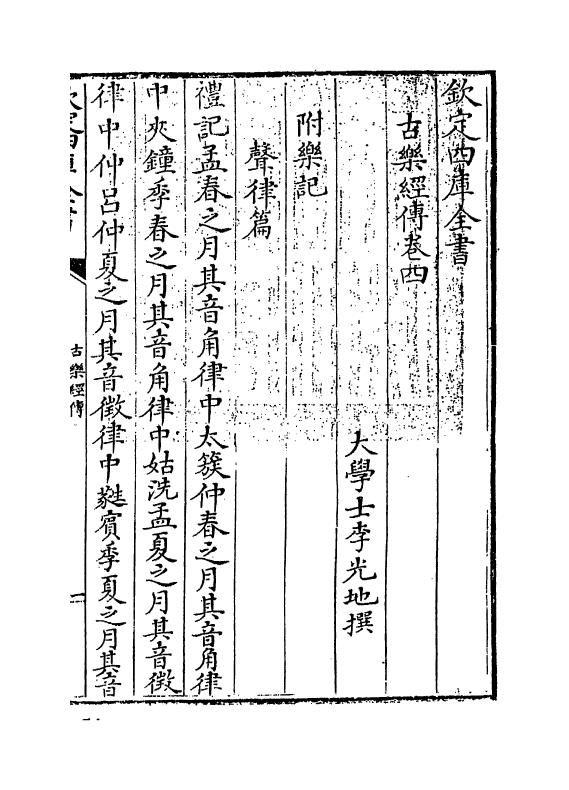 欽定四庫全書
古樂經傳卷四
大學士李光地撰
附樂記
聲律篇
禮記孟春之月其音角律中太簇仲春之月其音角律
中夾鐘季春之月其音角律中姑洗孟夏之月其音徵
律中仲呂仲夏之月其音徵律中蕤賓季夏之月其音
古樂經傳
一